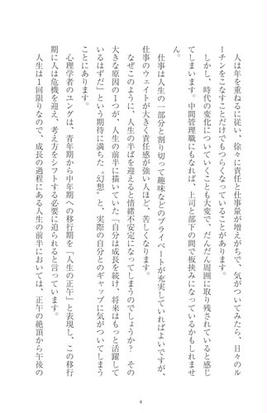 人は年を重ねるに従い、徐々に責任と仕事量が増えがちで、気がついてみたら、日々のル
ーチンをこなすことだけでもつらくなっていることがあります。
しかし、時代の変化についていくことも大変で、だんだん周囲に取り残されていると感じ
てしまいます。中間管理職にもなれば、上司と部下の間で板挟みになっているかもしれませ
ん。
仕事は人生の一部分と割り切って趣味などのプライベートが充実していればよいですが、
仕事のウェイトが大きく責任感が強い人ほど、苦しくなります。
なぜこのように、人生の半ばを迎えると情緒不安定になってしまうのでしょうか？　その
大きな原因の１つが、人生の前半に描いていた「自分は成長を続け、将来はもっと活躍して
いるはずだ」という期待に満ちた〝幻想〟と、実際の自分とのギャップに気がついてしまう
ことにあります。
心理学者のユングは、青年期から中年期への移行期を「人生の正午」と表現し、この移行
期に人は危機を迎え、考え方をシフトする必要に迫られると言っています。
人生は１回限りなので、成長の過程にある人生の前半においては、正午の絶頂から午後の